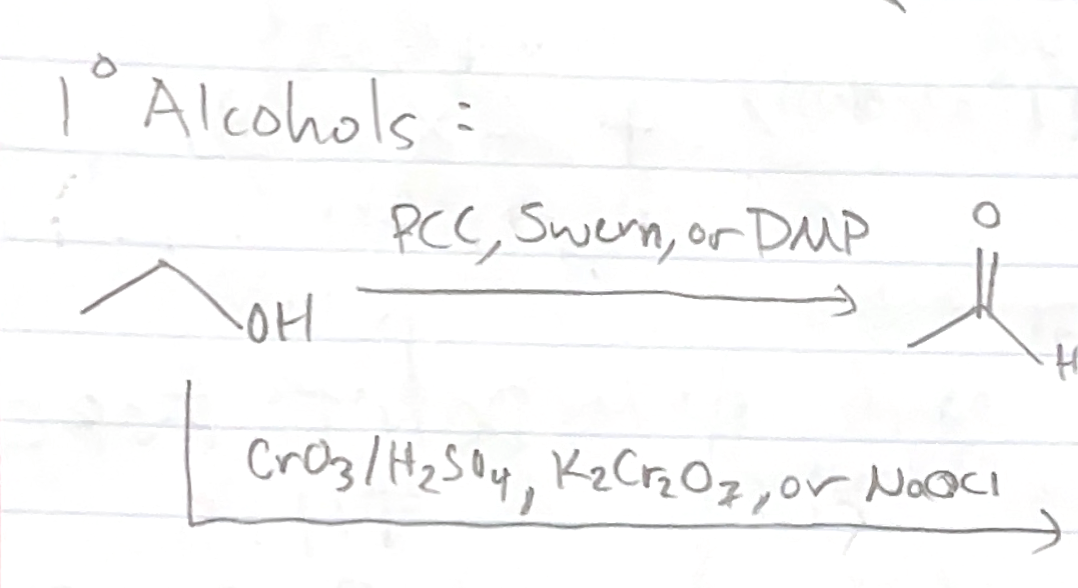 1° Alcohols:
PCC, Swern, or DMP
O
OH
H
CrO3/H2SO4, K2Cr2O7, or NaOCl